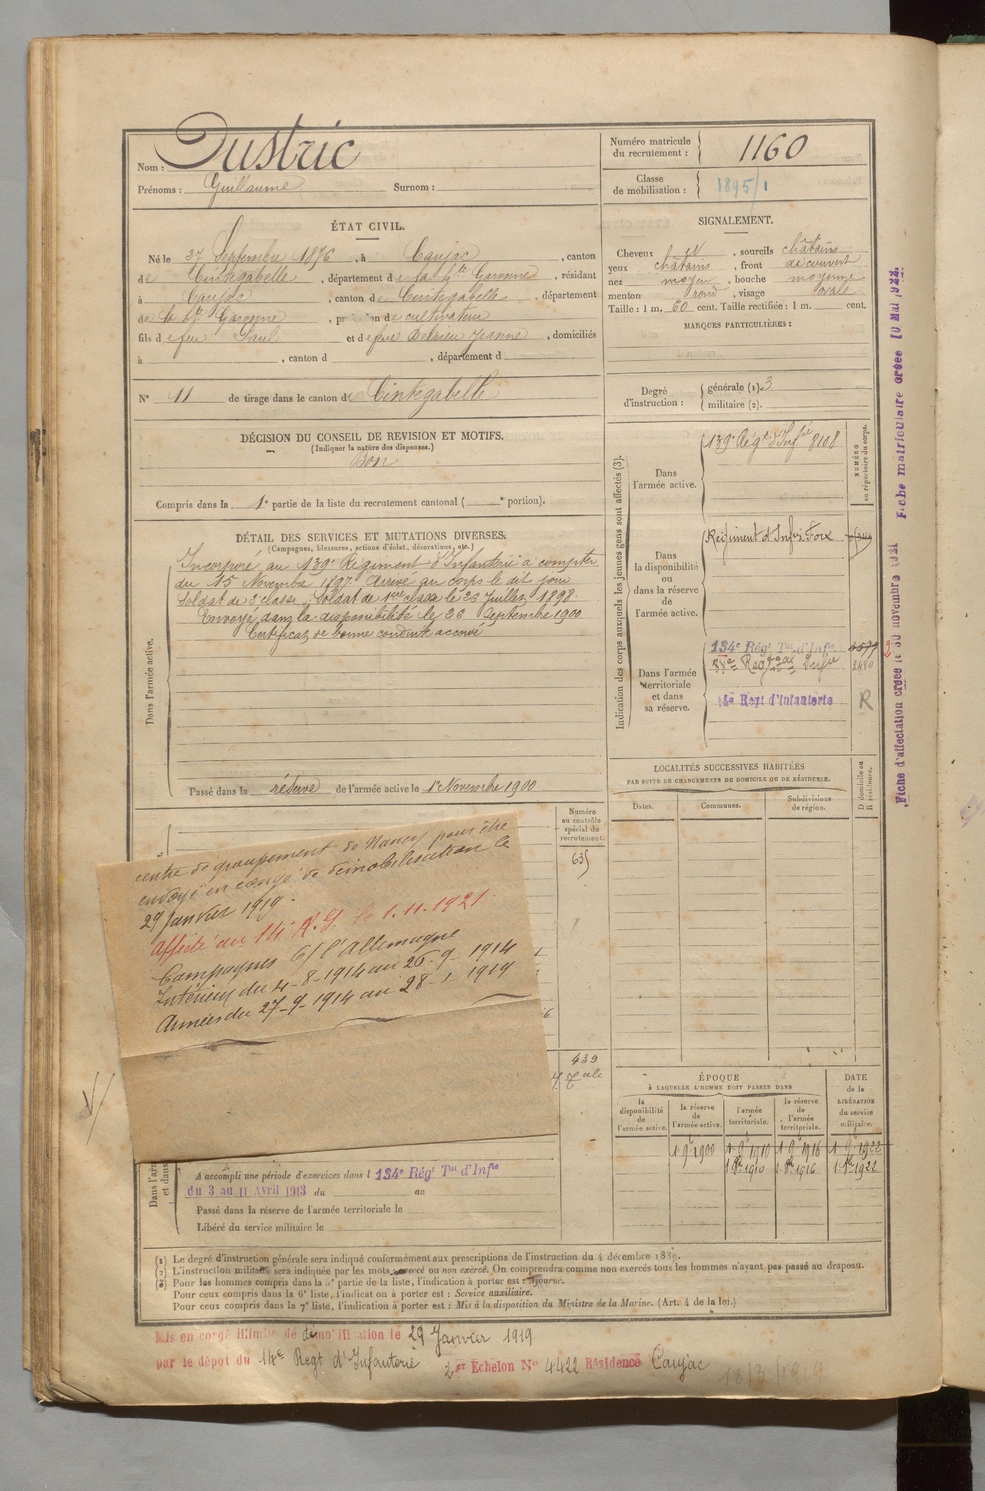 Nom : Dustric
Prénoms : Guillaume Surnom :
Numéro matricule
du recrutement : 1160
Classe
de mobilisation : 1895/1
ÉTAT CIVIL.
Né le 27 Septembre 1876, à Caujac, canton
de Cintegabelle, département de la Hte Garonne, résidant
à Caujac, canton de Cintegabelle, département
de la Hte Garonne, profession de cultivateur
fils de feu Paul et de feue Delrieu Jeanne, domiciliés
à , canton d , département d
N° 11 de tirage dans le canton de Cintegabelle
SIGNALEMENT.
Cheveux et, sourcils châtains
yeux châtains, front découvert
nez moyen, bouche moyenne
menton rond, visage ovale
Taille : 1 m. 60 cent. Taille rectifiée : 1 m. cent.
MARQUES PARTICULIÈRES :
Degré
d'instruction : générale (1). 3
militaire (2).
DÉCISION DU CONSEIL DE REVISION ET MOTIFS.
(Indiquer la nature des dispenses.)
Bon
Compris dans la 1e partie de la liste du recrutement cantonal ( e portion).
DÉTAIL DES SERVICES ET MUTATIONS DIVERSES.
(Campagnes, blessures, actions d'éclat, décorations, etc.)
Dans l'armée active.
Incorporé au 139e Régiment d'Infanterie à compter
du 15 Novembre 1897. Arrivé au corps le dit jour
Soldat de 2e classe. Soldat de 1ère classe le 26 Juillet 1898.
Envoyé dans la disponibilité le 26 Septembre 1900
Certificat de bonne conduite accordé
Passé dans la réserve de l'armée active le 1er Novembre 1900
Indication des corps auxquels les jeunes gens sont affectés (3).
NUMÉRO
au répertoire du corps.
Dans
l'armée active.
139e Régt d'Infie 8108
Dans
la disponibilité
ou
dans la réserve
de
l'armée active.
Régiment d'Infie Foix
Dans l'armée
territoriale
et dans
sa réserve.
134e Régt Tal d'Infie
2480
14e Régt d'Infanterie R
LOCALITÉS SUCCESSIVES HABITÉES
PAR SUITE DE CHANGEMENTS DE DOMICILE OU DE RÉSIDENCE.
Dates. Communes. Subdivisions
de région.
D domicile ou
R résidence.
Numéro
au contrôle
spécial du
recrutement.
635
439
centre de groupement de Nancy pour être
envoyé en congé de démobilisation le
29 Janvier 1919.
Affecté au 14e R.I. le 1.11.1921.
Campagnes c/ l'Allemagne
Intérieur du 4-8-1914 au 26-9-1914
Armées du 27-9-1914 au 28-1-1919
ÉPOQUE
À LAQUELLE L'HOMME DOIT PASSER DANS
la
disponibilité
de
l'armée active.
la réserve
de
l'armée active.
l'armée
territoriale.
la réserve
de
l'armée
territoriale.
DATE
de la
LIBÉRATION
du service
militaire.
1 9e 1900 1 9e 1910 1 9e 1916 1 9e 1922
1 8bre 1910 1 8bre 1916 1 8bre 1922
A accompli une période d'exercices dans l 134e Régt Tal d'Infie
du 3 au 11 Avril 1913 du au
Passé dans la réserve de l'armée territoriale le
Libéré du service militaire le
(1) Le degré d'instruction générale sera indiqué conformément aux prescriptions de l'instruction du 4 décembre 1889.
(2) L'instruction militaire sera indiquée par les mots exercé ou non exercé. On comprendra comme non exercés tous les hommes n'ayant pas passé au drapeau.
(3) Pour les hommes compris dans la 5e partie de la liste, l'indication à porter est : Ajourné.
Pour ceux compris dans la 6e liste, l'indication à porter est : Service auxiliaire.
Pour ceux compris dans la 7e liste, l'indication à porter est : Mis à la disposition du Ministre de la Marine. (Art. 4 de la loi.)
Mis en congé illimité de démobilisation le 29 Janvier 1919
par le dépot du 14e Régt d'Infanterie 2er Echelon N° 4422 Résidence Caujac
18/3/1919
Fiche d'affectation créée le 30 novembre 1921 Fiche matriculaire créée 10 Mai 1922.